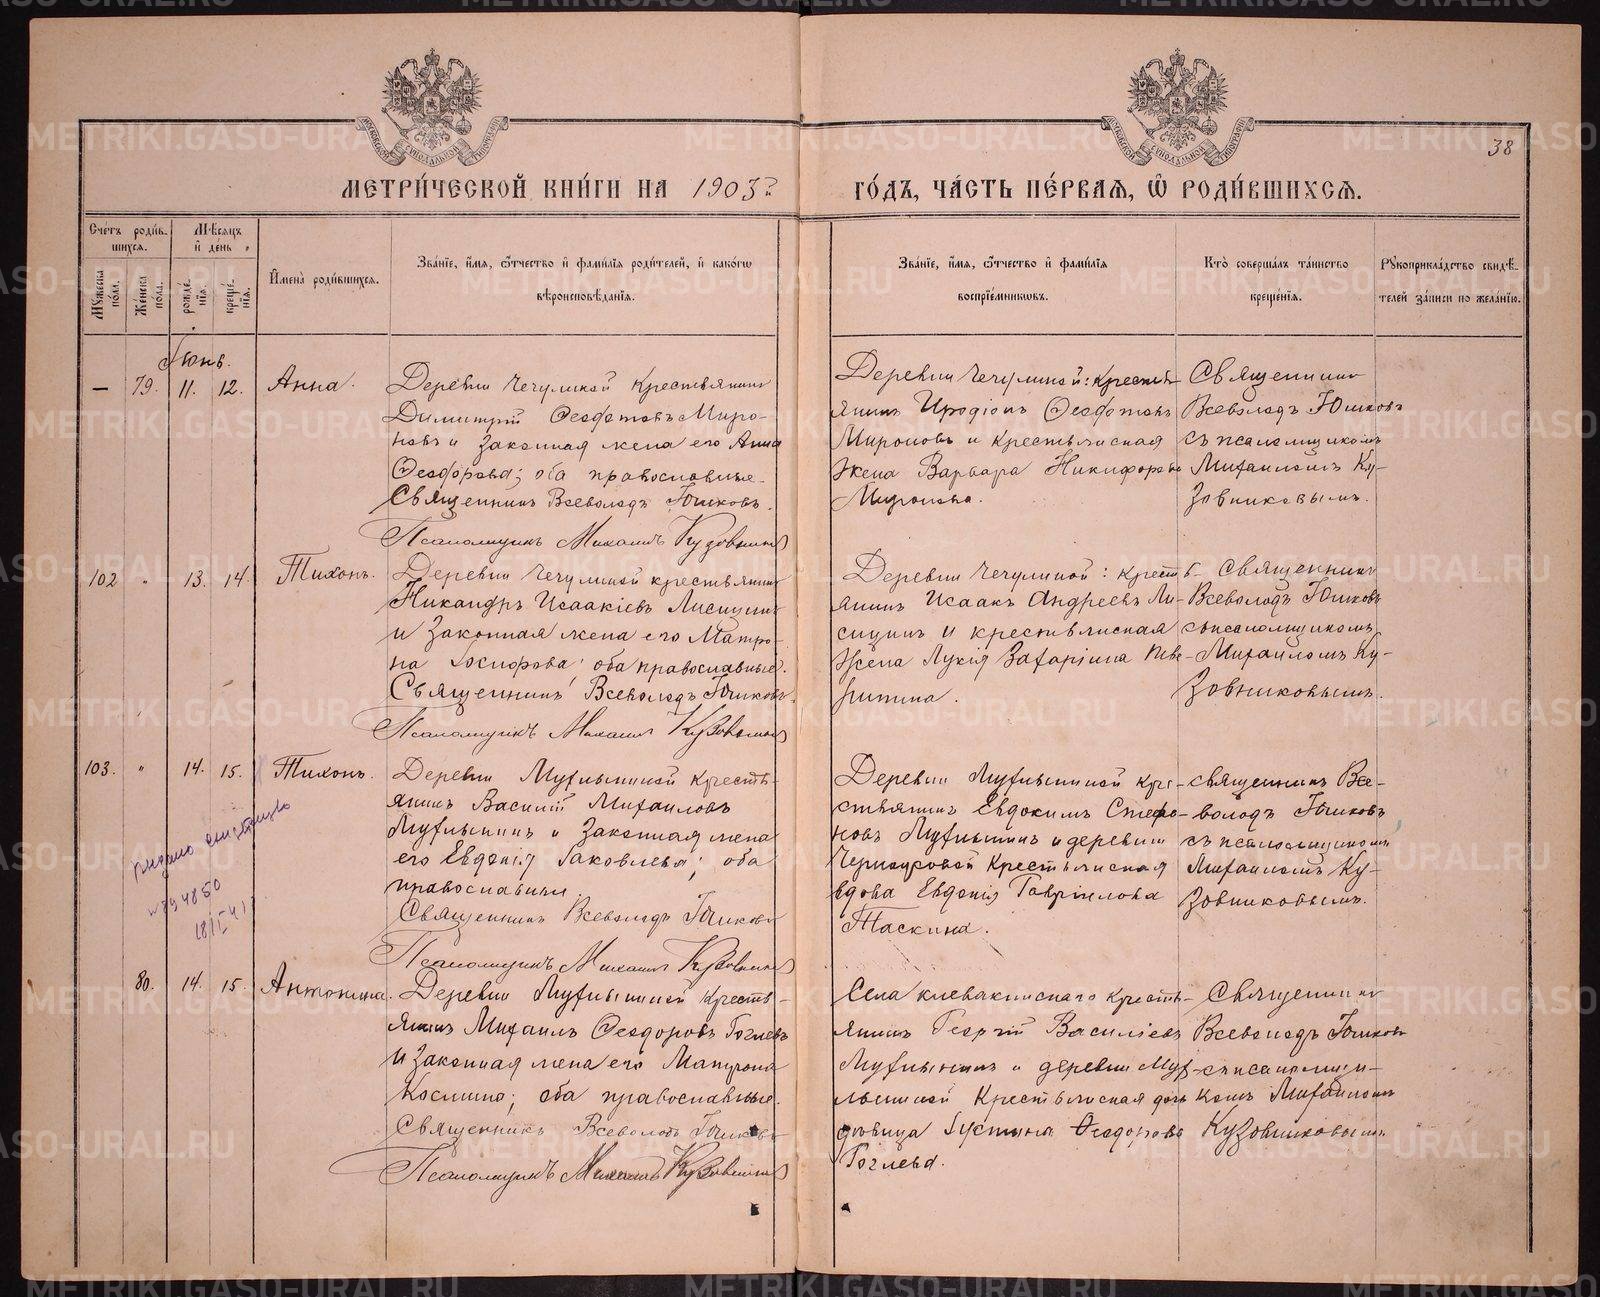 METRIKI.GASO-URAL.RU
МОСКОВСКОЙ СѴНОДАЛЬНОЙ ТИПОГРАФІИ
МОСКОВСКОЙ СѴНОДАЛЬНОЙ ТИПОГРАФІИ
38
МЕТРИ́ЧЕСКОЙ КНИ́ГИ НА 1903й
ГО́ДЪ, ЧА́СТЬ ПЕ́РВАѦ, Ѽ РОДИ́ВШИХСѦ.
Сче́тъ роди́в-
шихсѧ.
Мѣ́сѧцъ
и҆ де́нь
Мꙋ́жеска
по́ла.
Же́нска
пола.
рожде́-
нїѧ.
креще́-
нїѧ.
И҆мена̀ роди́вшихсѧ.
Зва́нїе, и҆́мѧ, ѻ҆́тчество и҆ фами́лїѧ роди́телей, и҆ како́гѡ
вѣроисповѣ́данїѧ.
Зва́нїе, и҆́мѧ, ѻ҆́тчество и҆ фами́лїѧ
воспрїе́мникѡвъ.
Кто̀ соверша́лъ та́инство
креще́нїѧ.
Рꙋкоприкла́дство свидѣ́-
телей за́писи по жела́нїю.
Іюнь.
— 79. 11. 12. Анна.
Деревни Чечулиной крестьянинъ
Димитрій Ѳеофотовъ Миро-
новъ и законная жена его Анна
Ѳеодорова; оба православные.
Священникъ Всеволодъ Юшковъ.
Псаломщикъ Михаилъ Кузовников
Деревни Чечулиной: кресть-
янинъ Иродіонъ Ѳеофотовъ
Мироновъ и крестьянская
жена Варвара Никифорова
Миронова.
Священникъ
Всеволодъ Юшковъ
съ псаломщикомъ
Михаиломъ Ку-
зовниковымъ.
102 " 13. 14. Тихонъ.
Деревни Чечулиной крестьянинъ
Никандръ Исаакіевъ Лисицинъ
и законная жена его Матро-
на оба православные.
Священникъ Всеволодъ Юшковъ.
Псаломщикъ Михаилъ Кузовников
Деревни Чечулиной: кресть-
янинъ Исаакъ Андреевъ Ли-
сицинъ и крестьянская
жена Лукія Захаріина
Священникъ
Всеволодъ Юшковъ
съ псаломщикомъ
Михаиломъ Ку-
зовниковымъ.
103. " 14. 15. Тихонъ.
Деревни Мухлыниной кресть-
янинъ Василій Михаиловъ
Мухлынинъ и законная жена
его Евдокія Іаковлева; оба
православные.
Священникъ Всеволодъ Юшковъ
Псаломщикъ Михаилъ Кузовников
Деревни Мухлыниной кре-
стьянинъ Евдокимъ Стефа-
новъ Мухлынинъ и деревни
крестьянская
вдова Евдокія Гавріилова
Таскина.
священникъ Все-
володъ Юшковъ
съ псаломщикомъ
Михаиломъ Ку-
зовниковымъ.
выдано
18/I 41
80. 14. 15. Антонина.
Деревни Мухлыниной кресть-
янинъ Михаилъ Ѳеодоровъ Гоглевъ
и законная жена его Матрона
Космина; оба православные.
Священникъ Всеволодъ Юшковъ
Псаломщикъ Михаилъ Кузовников
Села Клевакинскаго кресть-
янинъ Георгій Василіевъ
Мухлынинъ и деревни Мух-
лыниной крестьянская дочь
дѣвица Іустина Ѳеодорова
Гоглева.
Священникъ
Всеволодъ Юшковъ
съ псаломщи-
комъ Михаиломъ
Кузовниковымъ.